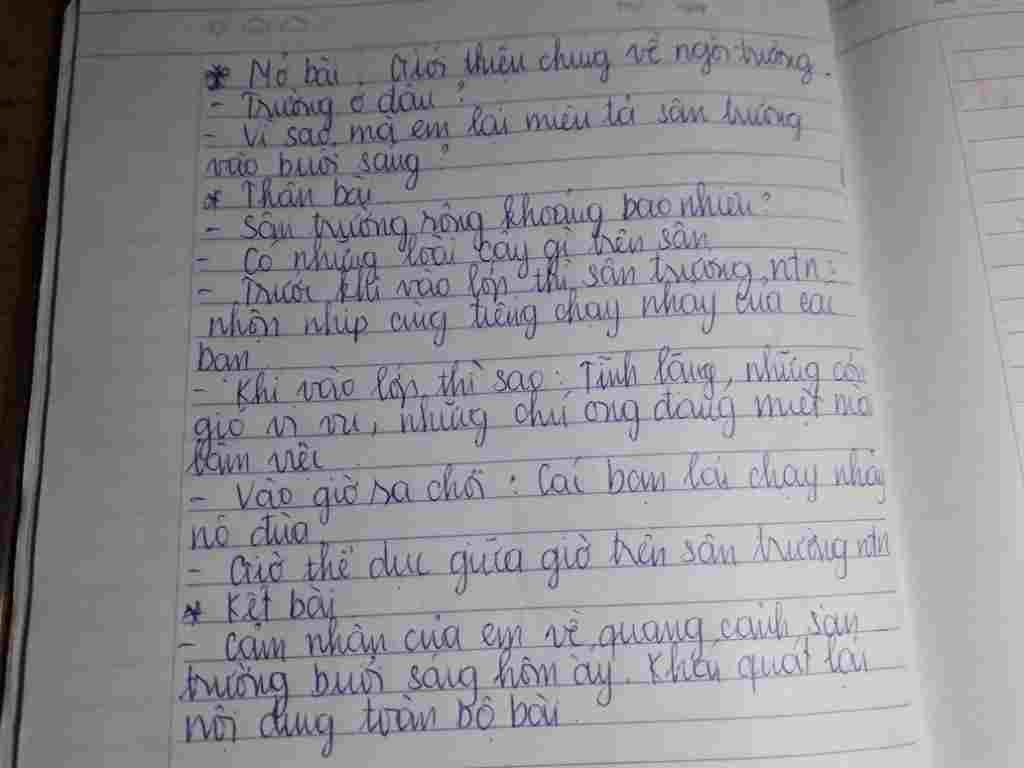 * Mở bài : Giới thiệu chung về ngôi trường.
- Trường ở đâu ?
- Vì sao mà em lại miêu tả sân trường
vào buổi sáng ?
* Thân bài
- Sân trường rộng khoảng bao nhiêu ?
- Có những loài cây gì trên sân
- Trước khi vào lớp thì sân trường ntn :
nhộn nhịp cùng tiếng chạy nhảy của các
bạn
- Khi vào lớp thì sao : Tĩnh lặng, những cơn
gió vi vu, những chú ong đang miệt mà
làm việc
- Vào giờ ra chơi : Các bạn lại chạy nhảy
nô đùa
- Giờ thể dục giữa giờ trên sân trường ntn
* Kết bài
- Cảm nhận của em về quang cảnh sân
trường buổi sáng hôm ấy. Khái quát lại
nội dung toàn bộ bài.